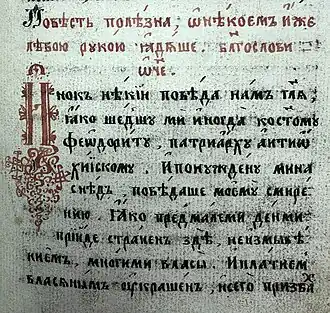 Повѣсть полезна, ѡ нѣкоемъ иже
лѣвою рукою ꙗдѧше. Благослови
ѡ҃че.
Инок нѣкїи повѣда нам таѧ,
ꙗко шедшу ми иногда к стому
Ѳеѡдориту, патриарху антиѡ
хиискому. И понужену ми на
снѣд, повѣдаше моему смире
нию. Ꙗко предмалеми денми
прииде странен здѣ, неизмыве
нием, многими власы. И платием
власѧным ѹкрашен, и сего призвах